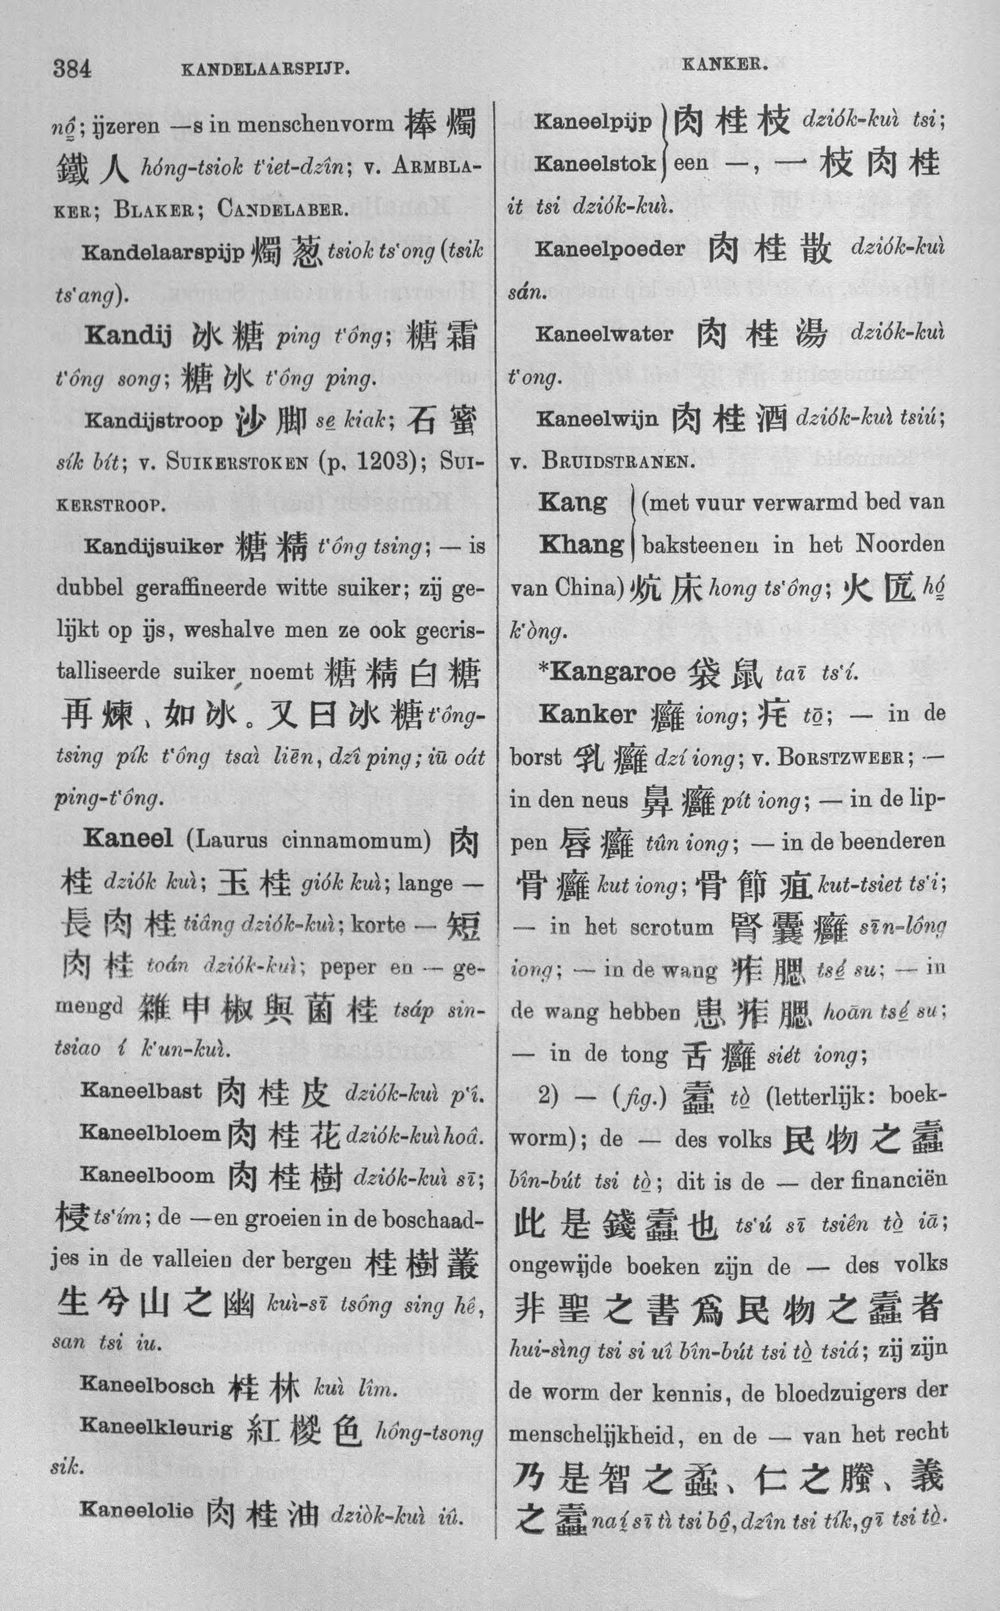 384 KANDELAARSPIJP. KANKER.
nó̤; ijzeren —s in menschenvorm 捧燭
鐵人 hóng-tsiok t'iet-dzîn; v. ARMBLA-
KER; BLAKER; CANDELABER.
Kandelaarspijp 燭葱 tsiok ts'ong (tsik
ts'ang).
Kandij 冰糖 ping t'ông; 糖霜
t'ông song; 糖冰 t'ông ping.
Kandijstroop 沙脚 se̤ kiak; 石蜜
sík bít; v. SUIKERSTOKEN (p. 1203); SUI-
KERSTROOP.
Kandijsuiker 糖精 t'ông tsing; — is
dubbel geraffineerde witte suiker; zij ge-
lijkt op ijs, weshalve men ze ook gecris-
talliseerde suiker noemt 糖精白糖
再煉、如冰。又曰冰糖 t'ông-
tsing pík t'ông tsaì liēn, dzî ping; iū oát
ping-t'ông.
Kaneel (Laurus cinnamomum) 肉
桂 dziók kuì; 玉桂 giók kuì; lange —
長肉桂 tiâng dziók-kuì; korte — 短
肉桂 toán dziók-kuì; peper en — ge-
mengd 雜申椒與菌桂 tsáp sin-
tsiao í k'un-kuì.
Kaneelbast 肉桂皮 dziók-kuì p'î.
Kaneelbloem 肉桂花 dziók-kuì hoâ.
Kaneelboom 肉桂樹 dziók-kuì sī;
梫 ts'ím; de —en groeien in de boschaad-
jes in de valleien der bergen 桂樹叢
生兮山之幽 kuì-sī tsông sing hê,
san tsi iu.
Kaneelbosch 桂林 kuì lîm.
Kaneelkleurig 紅椶色 hông-tsong
sik.
Kaneelolie 肉桂油 dziòk-kuì iû.
Kaneelpijp 肉桂枝 dziók-kuì tsi;
Kaneelstok een —, 一枝肉桂
it tsi dziók-kuì.
Kaneelpoeder 肉桂散 dziók-kuì
sán.
Kaneelwater 肉桂湯 dziók-kuì
t'ong.
Kaneelwijn 肉桂酒 dziók-kuì tsiú;
v. BRUIDSTRANEN.
Kang (met vuur verwarmd bed van
Khang baksteenen in het Noorden
van China) 炕床 hong ts'ông; 火匟 hó̤
k'òng.
*Kangaroe 袋鼠 taī ts'í.
Kanker 癰 iong; 疘 tō; — in de
borst 乳癰 dzí iong; v. BORSTZWEER; —
in den neus 鼻癰 pít iong; — in de lip-
pen 唇癰 tûn iong; — in de beenderen
骨癰 kut iong; 骨節疽 kut-tsiet ts'i;
— in het scrotum 腎囊癰 sīn-lông
iong; — in de wang 痄腮 tsé̤ su; — in
de wang hebben 患痄腮 hoān tsé̤ su;
— in de tong 舌癰 siét iong;
2) — (fig.) 蠹 tò̤ (letterlijk: boek-
worm); de — des volks 民物之蠹
bîn-bút tsi tò̤; dit is de — der financiën
此是錢蠹也 ts'ú sī tsiên tò̤ iā;
ongewijde boeken zijn de — des volks
非聖之書爲民物之蠹者
hui-sìng tsi si uî bîn-bút tsi tò̤ tsiá; zij zijn
de worm der kennis, de bloedzuigers der
menschelijkheid, en de — van het recht
乃是智之蟊、仁之螣、義
之蠹 naí sī tì tsi bô̤, dzîn tsi tík, gī tsi tò̤.